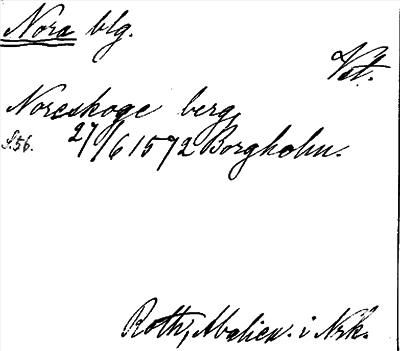 Nora blg.
Vst.
Noreskoge berg
S.56. 27/6 1572 Borgholm.
Roth, i Nrk.